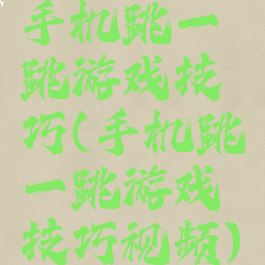 手机跳一
跳游戏技
巧(手机跳
一跳游戏
技巧视频)